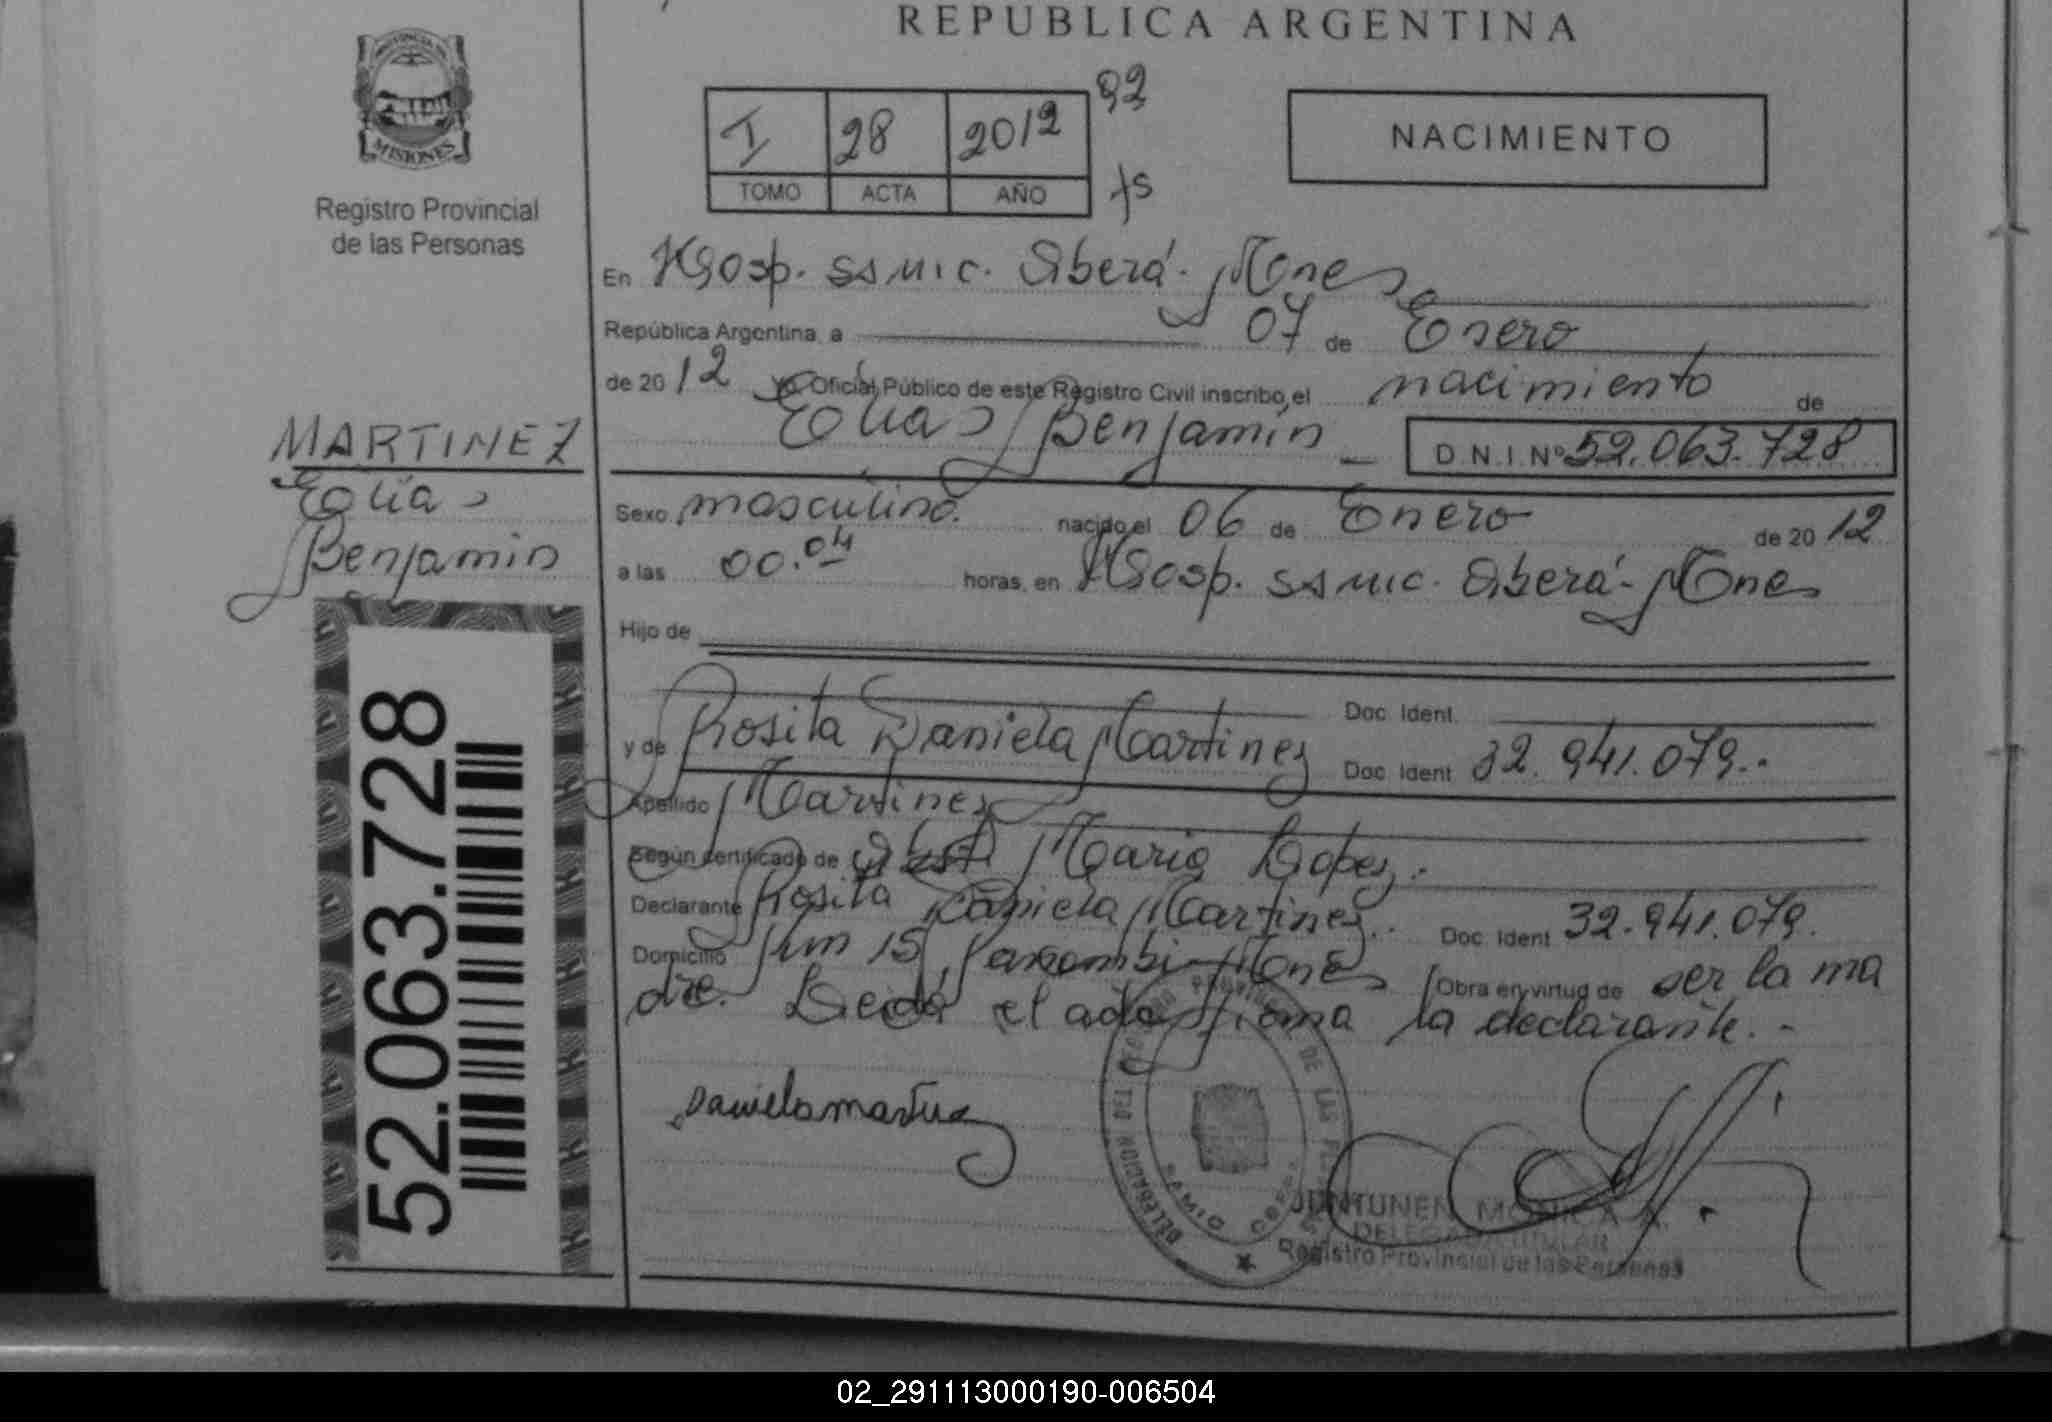 REPUBLICA ARGENTINA
PROVINCIA DE
MISIONES
Registro Provincial
de las Personas
I 28 2012
TOMO ACTA AÑO
NACIMIENTO
En Hosp. SAMIC. Oberá. Mnes
República Argentina, a 07 de Enero
de 2012 Yo, Oficial Público de este Registro Civil inscribo el nacimiento de
Elías Benjamín D.N.I.Nº 52.063.728
MARTINEZ
Elías
Benjamín
Sexo masculino. nacido el 06 de Enero de 2012
a las 00.04 horas, en Hosp. SAMIC. Oberá - Mnes
Hijo de
Doc. Ident.
y de Rosita Daniela Martinez Doc. Ident. 32.941.079..
Apellido Martinez
Según certificado de Obst Mario Lopez.
Declarante Rosita Daniela Martinez.. Doc. Ident. 32.941.079.
Domicilio Km 15, Panambí - Mnes Obra en virtud de ser la ma
dre. Leída el acta firma la declarante. -
Daniela Martinez
DELEGACION DEL REGISTRO PROVINCIAL DE LAS
JUNTUNEN MONICA A.
DELEGADA TITULAR
Registro Provincial de las Personas
52.063.728
02_291113000190-006504